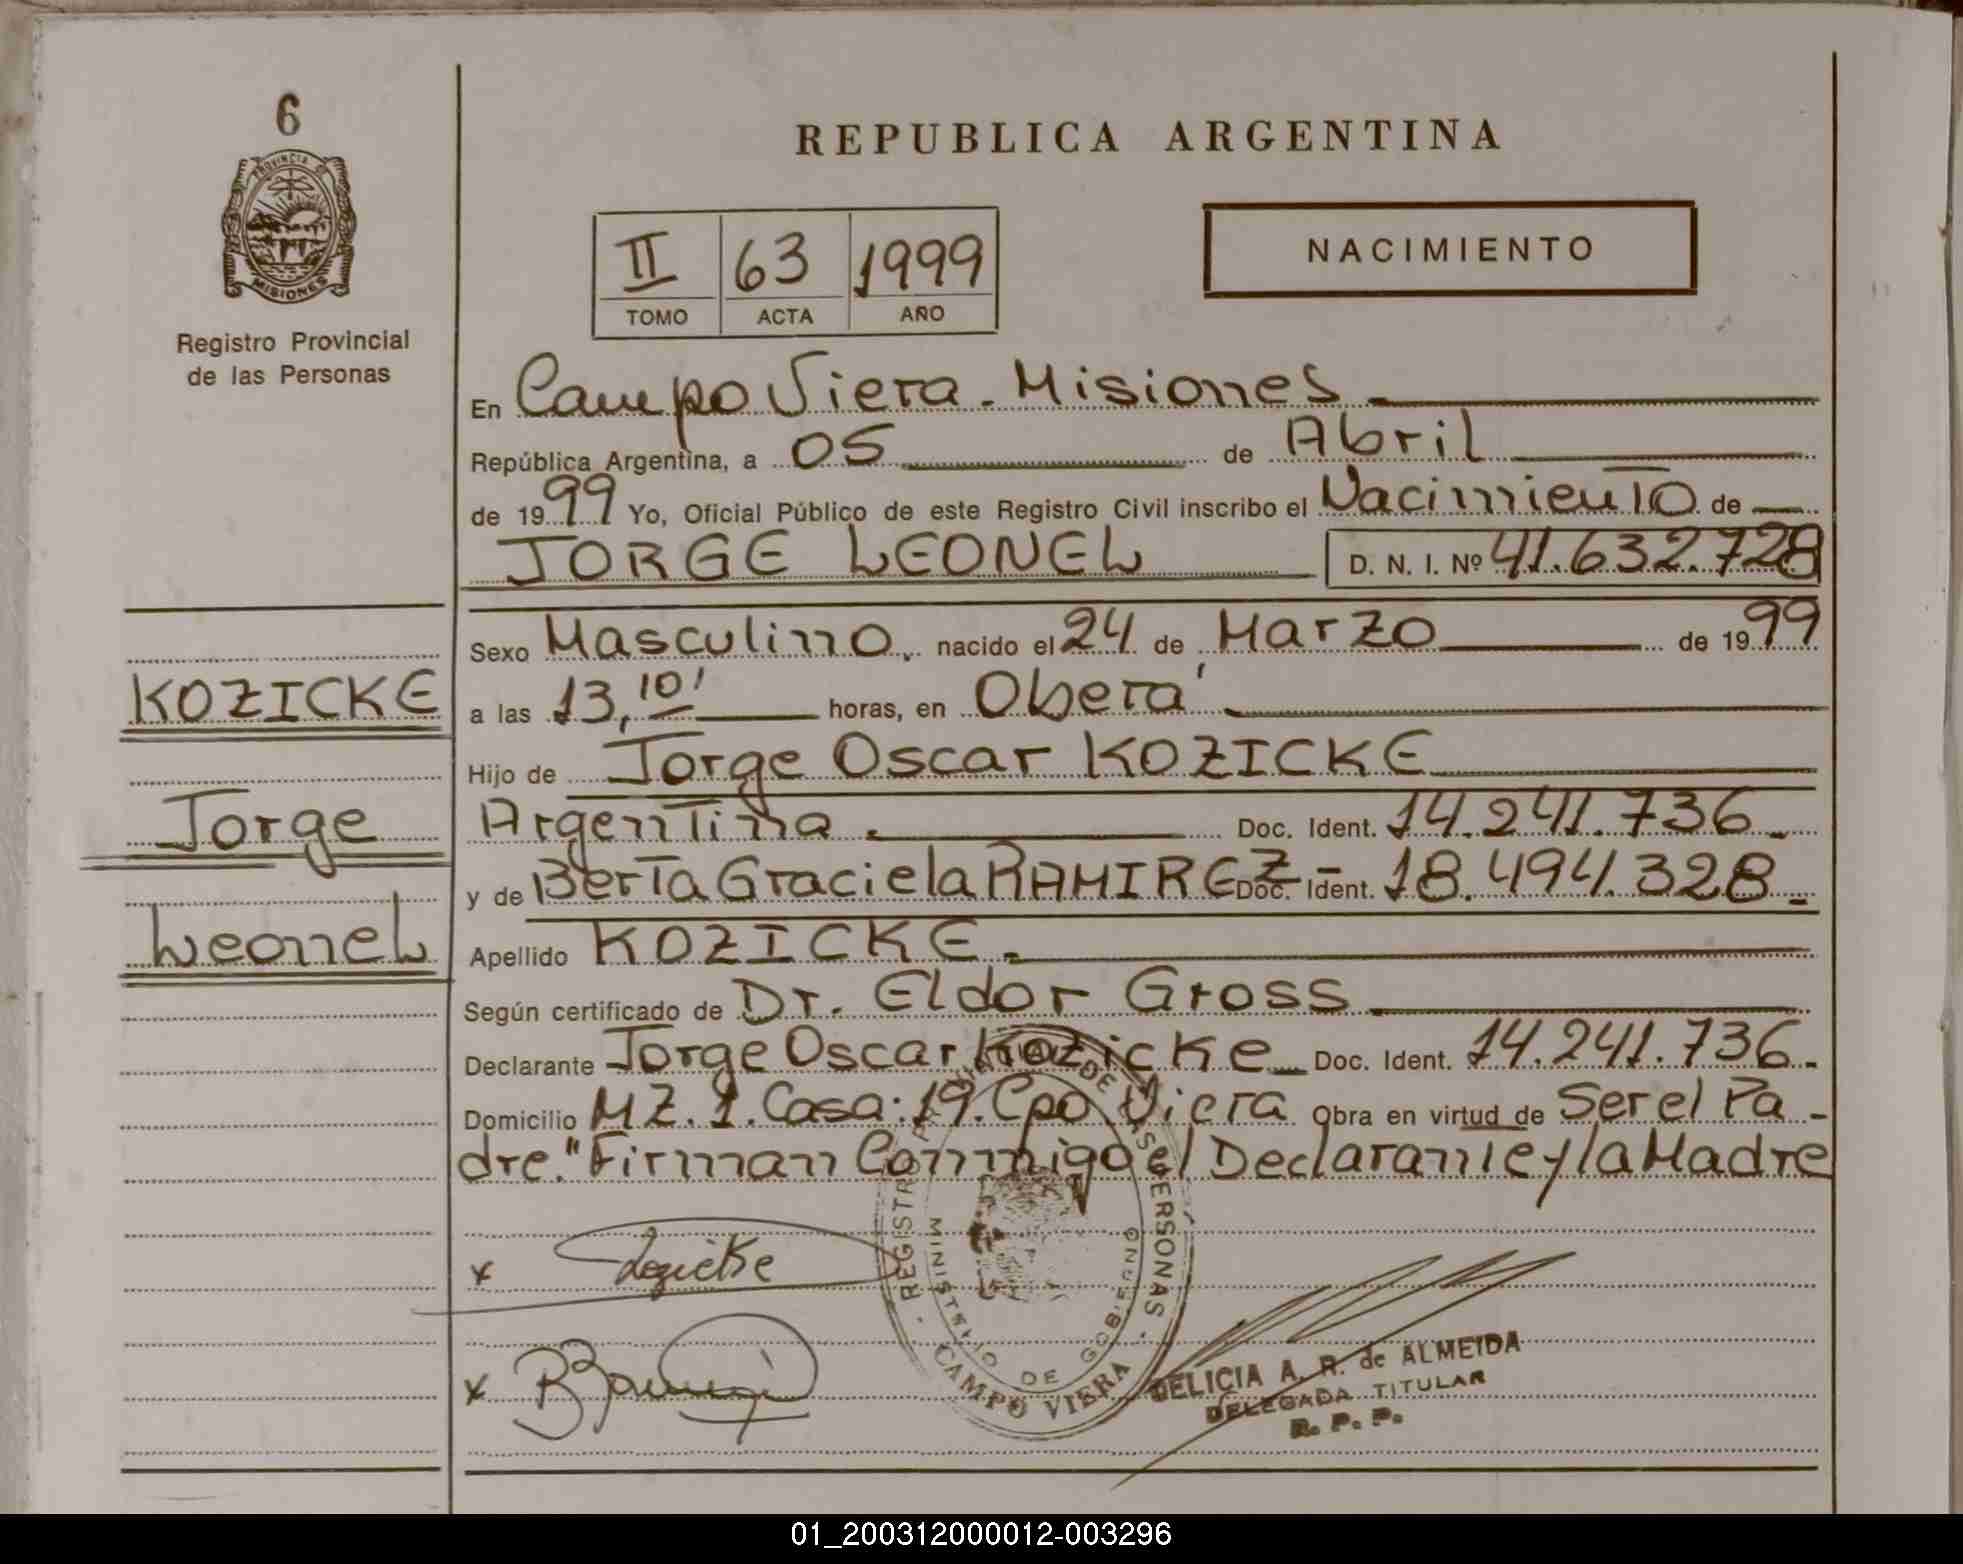 6
PROVINCIA DE
MISIONES
Registro Provincial
de las Personas
REPUBLICA ARGENTINA
II 63 1999
TOMO ACTA AÑO
NACIMIENTO
En Campo Viera - Misiones
República Argentina, a 05 de Abril
de 1999 Yo, Oficial Público de este Registro Civil inscribo el Nacimiento de
JORGE LEONEL D. N. I. Nº 41.632.728
Sexo Masculino, nacido el 24 de Marzo de 1999
KOZICKE
a las 13,10' horas, en Oberá
Hijo de Jorge Oscar KOZICKE
Jorge
Argentina. Doc. Ident. 14.241.736-
y de Berta Graciela RAMIREZ - Doc. Ident. 18.494.328-
Leonel
Apellido KOZICKE.
Según certificado de Dr. Eldor Gross
Declarante Jorge Oscar Kozicke Doc. Ident. 14.241.736-
Domicilio MZ. 1. Casa: 19. Cpo Viera Obra en virtud de Ser el Pa-
dre." Firman Conmigo el Declarante y la Madre
x Kozicke
x
REGISTRO PROVINCIAL DE LAS PERSONAS
MINISTERIO DE GOBIERNO
CAMPO VIERA
DELICIA A. R. de ALMEIDA
DELEGADA TITULAR
R. P. P.
01_200312000012-003296